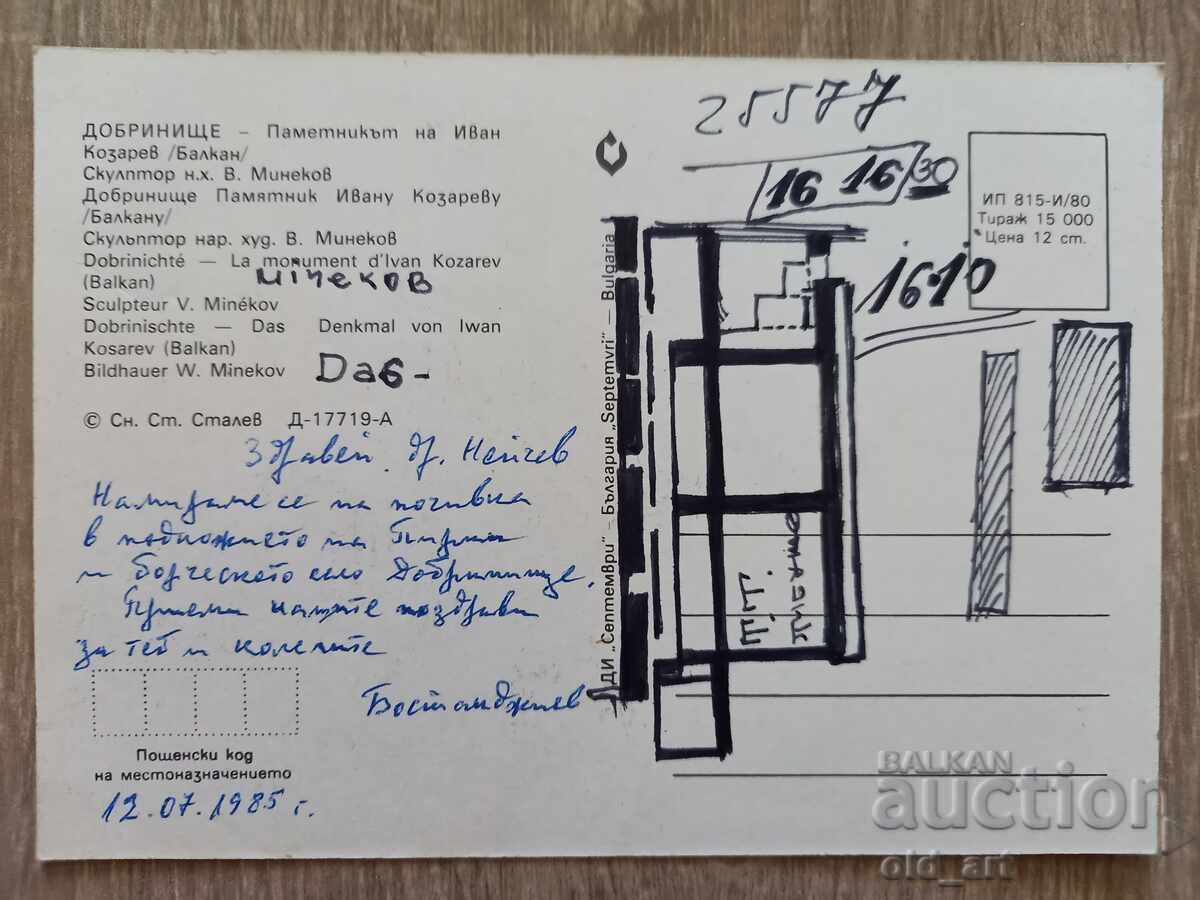 ДОБРИНИЩЕ – Паметникът на Иван
Козарев /Балкан/
Скулптор н.х. В. Минеков
Добринище Памятник Ивану Козареву
/Балкану/
Скульптор нар. худ. В. Минеков
Dobrinichté — La monument d'Ivan Kozarev
(Balkan)
Минеков
Sculpteur V. Minékov
Dobrinischte — Das Denkmal von Iwan
Kosarev (Balkan)
Bildhauer W. Minekov
Даб-
© Сн. Ст. Сталев Д-17719-А
Здравей др. Нейчев
Намираме се на почивка
в подножието на Пирин
и борческото село Добринище.
Приеми нашите поздрави
за теб и колегите
Бостанджиев
Пощенски код
на местоназначението
12.07.1985 г.
ДИ „Септември" – България „Septemvri" – Bulgaria
25577
16 16/30
16.10
ИП 815-И/80
Тираж 15 000
Цена 12 ст.
BALKAN
auction
old_art